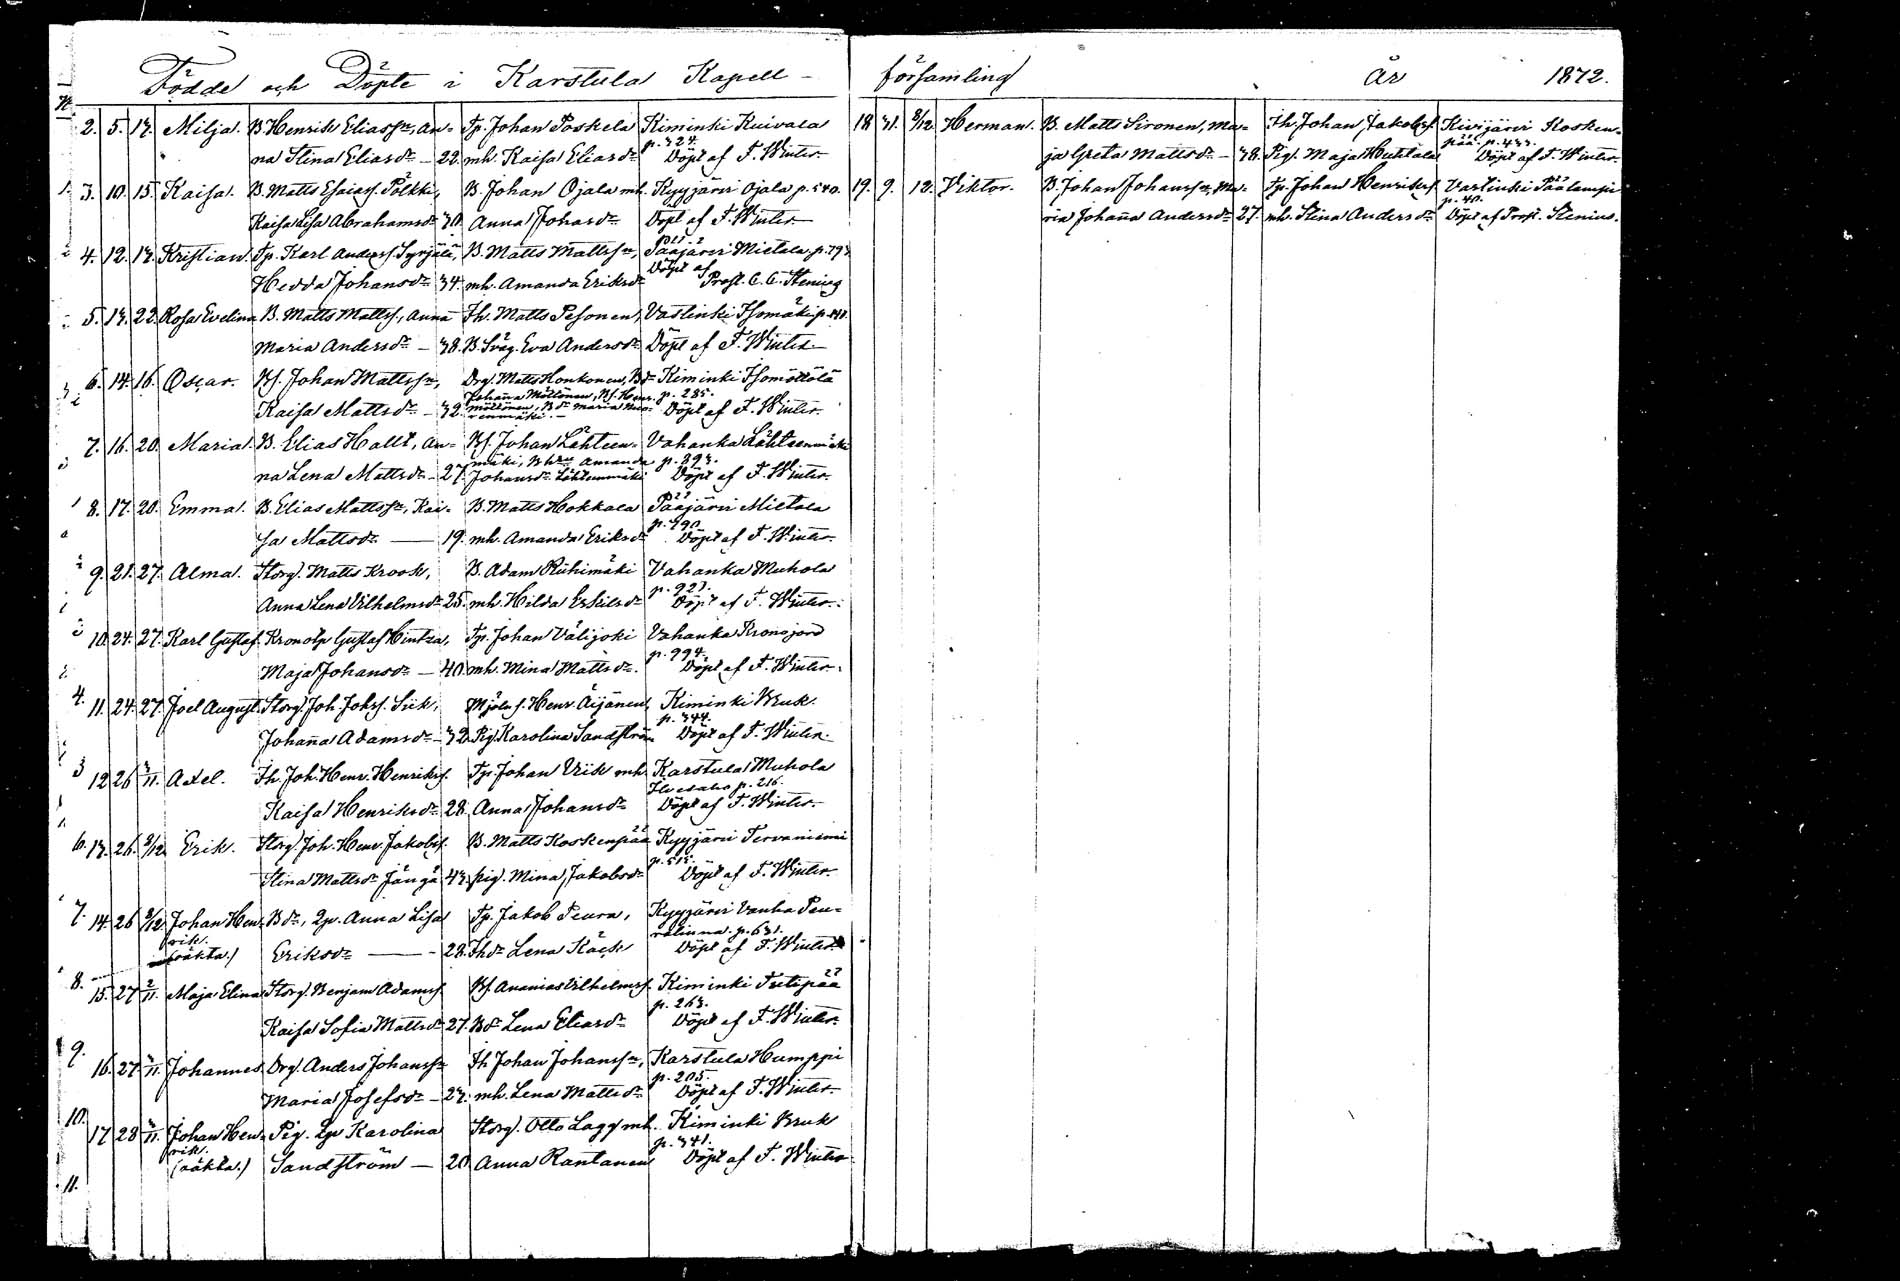 Födde och Döpte i Karstula Kapell-
församling År 1872.
2. 5. 13. Milja. B. Henrik Eliass:n, An- Tp. Johan Poskela Kiminki Kuivala
na Stina Eliasd:r — 22. mh. Kaisa Eliasd:r p. 324. Döpt af F. Winter.
3. 10. 15. Kaisa. B. Matts Esaiass. Pölkki, B. Johan Ojala mh. Kyyjärvi Ojala p. 540.
Kaisa Lisa Abrahamsd:r 30. Anna Johansd:r Döpt af F. Winter
4. 12. 13. Kristian. Tp. Karl Anderss. Syrjälä, B. Matts Mattss:n, Pääjärvi Mietala p. 793
Hedda Johansd:r 34. mh. Amanda Eriksd:r Döpt af Prost. C. C. Stenius
5. 13. 22. Rosa Evelina B. Matts Mattss., Anna Th. Matts Pesonen, Vastinki Isomäki
Maria Andersd:r — 38. B. Sväg. Eva Andersd:r Döpt af F. Winter
6. 14. 16. Oscar. Bs. Johan Mattss:n, Drg. Matts Honkonen, Bd:r Kiminki Isomöttölä
Johanna Möttönen, Bs. Henr. p. 285.
Kaisa Mattsd:r — 32. Möttönen, Bd:r Maria Döpt af F. Winter.
7. 16. 20. Maria. B. Elias Hallt, An- Bs. Johan Lähteen- Vahanka Lähteenmäki
mäki, Amanda p. 893.
na Lena Mattsd:r — 27. Johansd:r Lähteenmäki Döpt af F. Winter.
8. 17. 20. Emma. B. Elias Mattss:n, Kai- B. Matts Hokkala Pääjärvi Mietala
sa Mattsd:r — 19. mh. Amanda Eriksd:r p. 790. Döpt af F. Winter.
9. 21. 27. Alma. Storg. Matts Krook, B. Adam Riihimäki Vahanka Muhola
Anna Lena Vilhelmsd:r 25. mh. Hilda Eskilsd:r p. 923. Döpt af F. Winter.
10. 24. 27. Karl Gustaf. Kronotp Gustaf Hintza, Tp. Johan Välijoki Vahanka Kronojord
Maja Johansd:r — 40. mh. Mina Mattsd:r. p. 994. Döpt af F. Winter.
11. 24. 27. Joel August. Storg. Joh. Johss. Siik, Mjöln s. Henr. Äijänen, Kiminki Bruk
Johanna Adamsd:r — 32. Pig. Karolina Sandström p. 344. Döpt af F. Winter.
12 26 3/11. Axel. Th. Joh. Henr. Henrikss. Tp. Johan Viik mh. Karstula Muhola
Kaisa Henriksd:r 28. Anna Johansd:r p. 216. Döpt af F. Winter.
13. 26. 8/12 Erik. Storg. Joh. Henr. Jakobss. B. Matts Koskenpää Kyyjärvi Tervaniemi
Stina Mattsd:r 43. pig. Mina Jakobsd:r p. 515. Döpt af F. Winter.
14. 26 8/12. Johan Hen- Bd:r, Qp. Anna Lisa Tp. Jakob Peura, Kyyjärvi Vanha Peu-
rik. ralinna. p. 631.
(oäkta.) Eriksd:r — 28. Thd:r Lena Käck Döpt af F. Winter.
15. 27 2/11. Maja Elina Storg. Benjam Adamss. Bs. Ananias Vilhelmss. Kiminki Tutipää
Kaisa Sofia Mattsd:r 27. Bd:r Lena Eliasd:r p. 263. Döpt af F. Winter.
16. 27 3/11. Johannes. Drg. Anders Johanss:n Th Johan Johanss:n, Karstula Humppi
Maria Josefsd:r — 23. mh. Lena Mattsd:r p. 205. Döpt af F. Winter.
17 28 3/11. Johan Hen- Pig. Qp Karolina Storg. Otto Lagg mh. Kiminki Bruk
rik. p. 341.
(oäkta.) Sandström — 20 Anna Rantanen Döpt af F. Winter
18 31. 8/12 Herman. B. Matts Sironen, Ma- Th. Johan Jakobss. Kivijärvi Kosken-
pää. p. 433.
ja Greta Mattsd:r — 38. Pig. Maja Huhtala Döpt af F. Winter.
19. 9. 12. Viktor. B. Johan Johanss:n, Ma- Tp. Johan Henrikss. Vastinki Päälampi
p. 40.
ria Johanna Andersd:r 27. mh. Stina Andersd:r Döpt af Prost. Stenius.